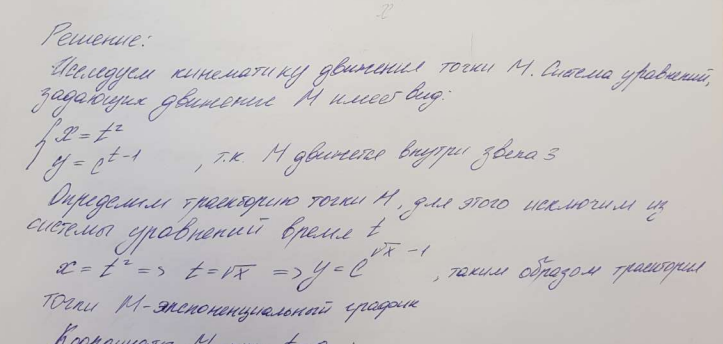 x
Решение:
Иследуем кинематику движения точки M. Система уравнений,
задающих движение M имеет вид:
{ x = t²
y = e^{t-1} , т.к. M движется внутри звена 3
Определим траекторию точки M, для этого исключим из
системы уравнений время t
x = t² => t = √x => y = e^{√x - 1} , таким образом траектория
точки M - экспоненциальный график